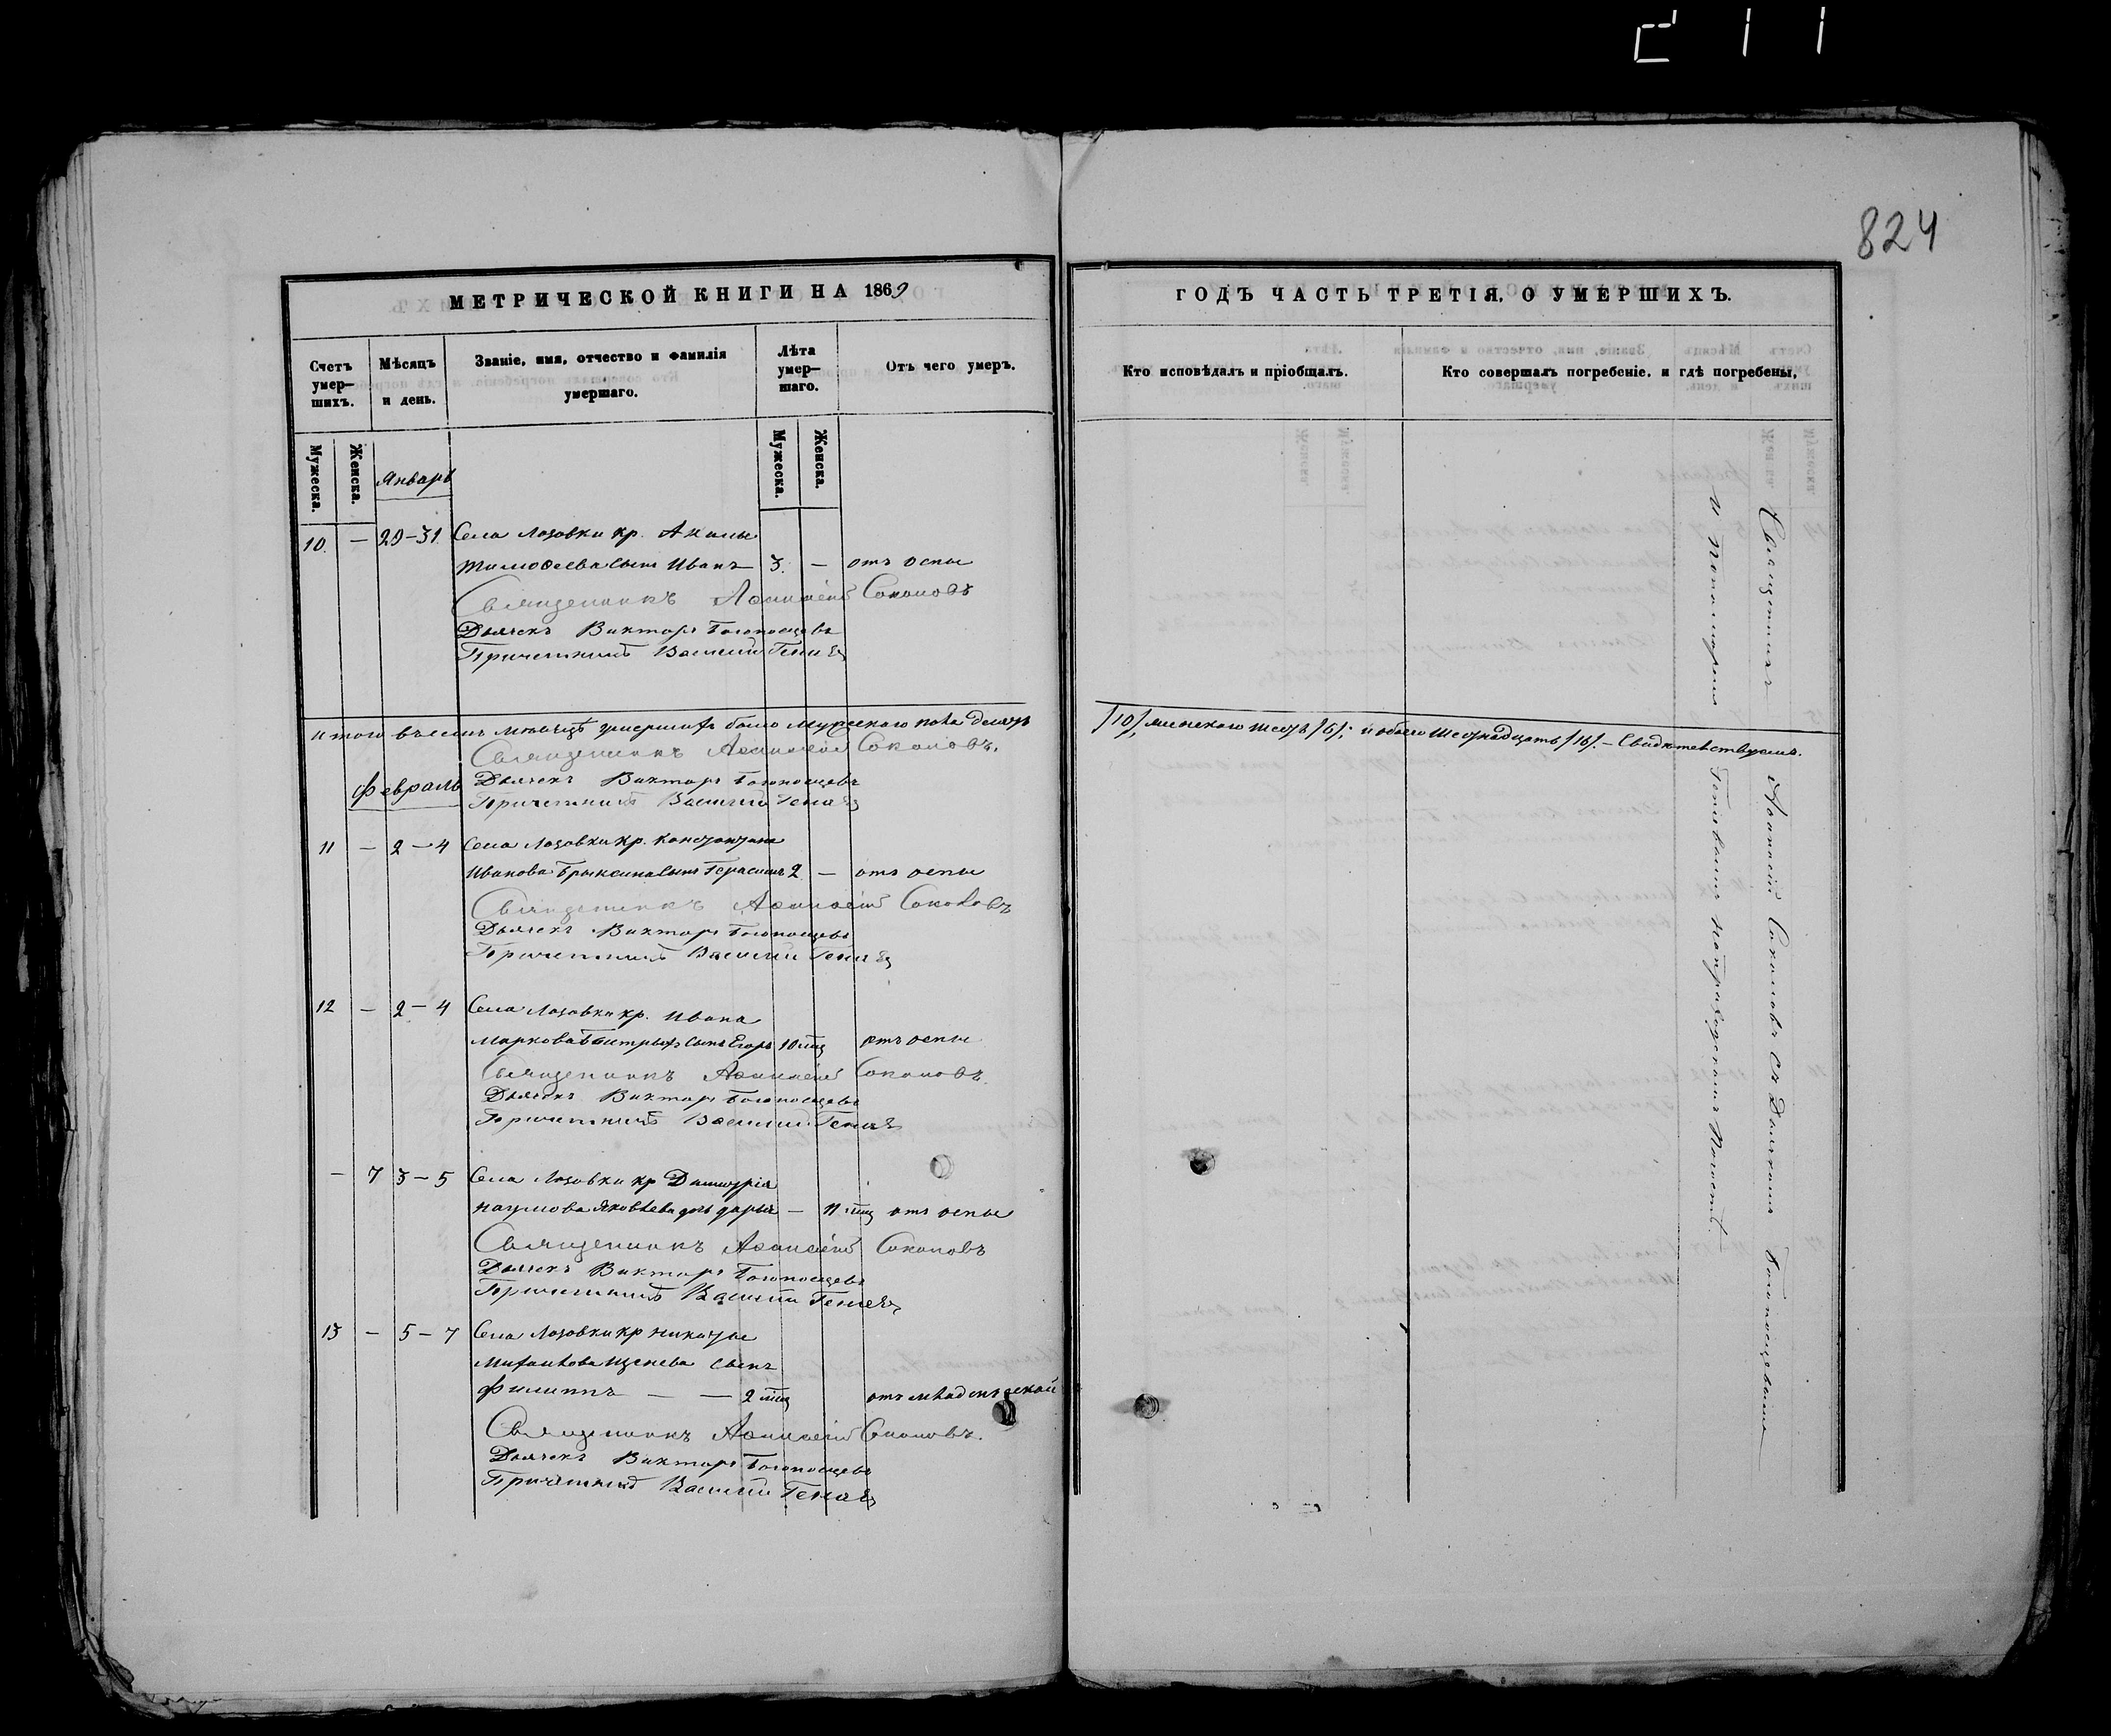 211
824
МЕТРИЧЕСКОЙ КНИГИ НА 1869
Счетъ умер-шихъ.
Мѣсяцъ и день.
Званіе, имя, отчество и фамилія умершаго.
Лѣта умер-шаго.
Отъ чего умеръ.
Мужеска.
Женска.
Мужеска.
Женска.
Январь
10. — 29–31. Села Лозовки кр. Акилы
Тимофеева сынъ Иванъ 3. — отъ оспы
Священникъ Афанасій Соколовъ
Дьячекъ Викторъ Богоносцевъ
Причетникъ Василій
Итого въ семъ мѣсяцѣ умершихъ было мужескаго пола десять
Священникъ Афанасій Соколовъ.
Февраль
Дьячекъ Викторъ Богоносцевъ
Причетникъ Василій
11 — 2–4 Села Лозовки кр. Константина
Иванова Брыксина сынъ Герасимъ 2 — отъ оспы
Священникъ Афанасій Соколовъ
Дьячекъ Викторъ Богоносцевъ
Причетникъ Василій
12 — 2–4 Села Лозовки кр. Ивана
Маркова сынъ Егоръ 10 мц отъ оспы
Священникъ Афанасій Соколовъ.
Дьячекъ Викторъ Богоносцевъ
Причетникъ Василій
— 7 3–5 Села Лозовки кр Димитрія
Наумова Яковлева дочь Дарья — 11 мц отъ оспы
Священникъ Афанасій Соколовъ
Дьячекъ Викторъ Богоносцевъ
Причетникъ Василій
13 — 5–7 Села Лозовки кр Никиты
Михайлова Щенева сынъ
Филиппъ — — 2 мц отъ младенческой
Священникъ Афанасій Соколовъ.
Дьячекъ Викторъ Богоносцевъ
Причетникъ Василій
ГОДЪ ЧАСТЬ ТРЕТІЯ, О УМЕРШИХЪ.
Кто исповѣдалъ и пріобщалъ.
Кто совершалъ погребеніе, и гдѣ погребены.
/10/, женскаго шесть /6/; и обоего шестнадцать /16/. — Свидѣтельствуемъ.
Священникъ Афанасій Соколовъ съ Дьячкомъ Богоносцевымъ
и Пономаремъ на приходскомъ